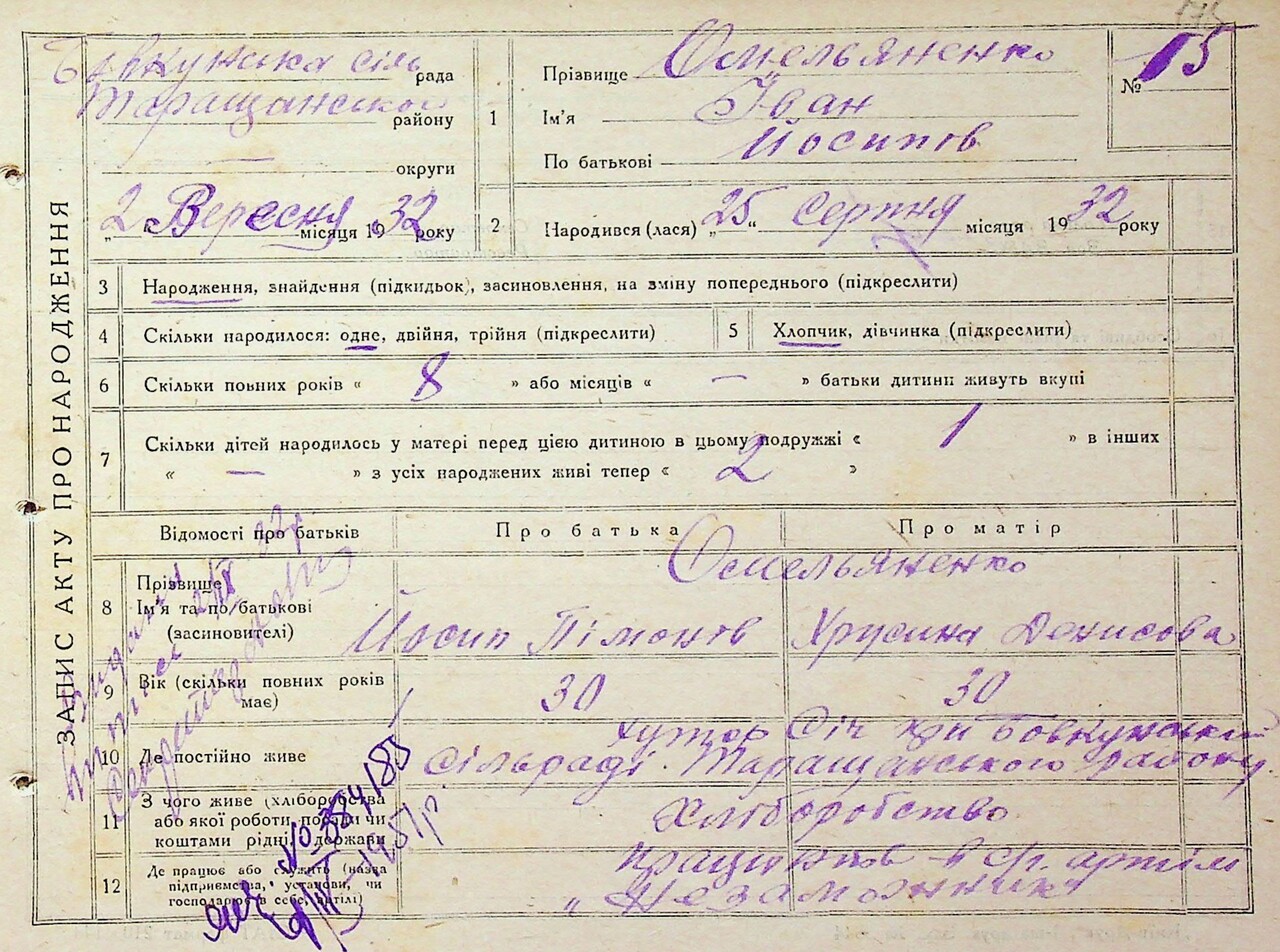 ЗАПИС АКТУ ПРО НАРОДЖЕННЯ
Бовкунська сіль рада
Таращанського району
— округи
„2“ Вересня місяця 1932 року
№ 15
1 Прізвище Омельяненко
Ім'я Іван
По батькові Йосипів
2 Народився (лася) „25“ серпня місяця 1932 року
3 Народження, знайдення (підкидьок), засиновлення, на зміну попереднього (підкреслити)
4 Скільки народилося: одне, двійня, трійня (підкреслити) 5 Хлопчик, дівчинка (підкреслити)
6 Скільки повних років « 8 » або місяців « — » батьки дитини живуть вкупі
7 Скільки дітей народилось у матері перед цією дитиною в цьому подружжі « 1 » в інших
« — » з усіх народжених живі тепер « 2 »
Відомості про батьків Про батька Про матір
8 Прізвище Омельяненко
Ім'я та по батькові
(засиновителі) Йосип Пімонов Хрусина Денисова
9 Вік (скільки повних років має) 30 30
10 Де постійно живе хутор Січ при Бовкунський
сільраді Таращанського району
11 З чого живе (хліборобства
або якої роботи, посади чи
коштами рідні, держави Хліборобство
12 Де працює або служить (назва
підприємства, установи, чи
господарює в себе, артілі) Працюють в с/г артіли
„Незаможник“
№ 384185
1951 р.